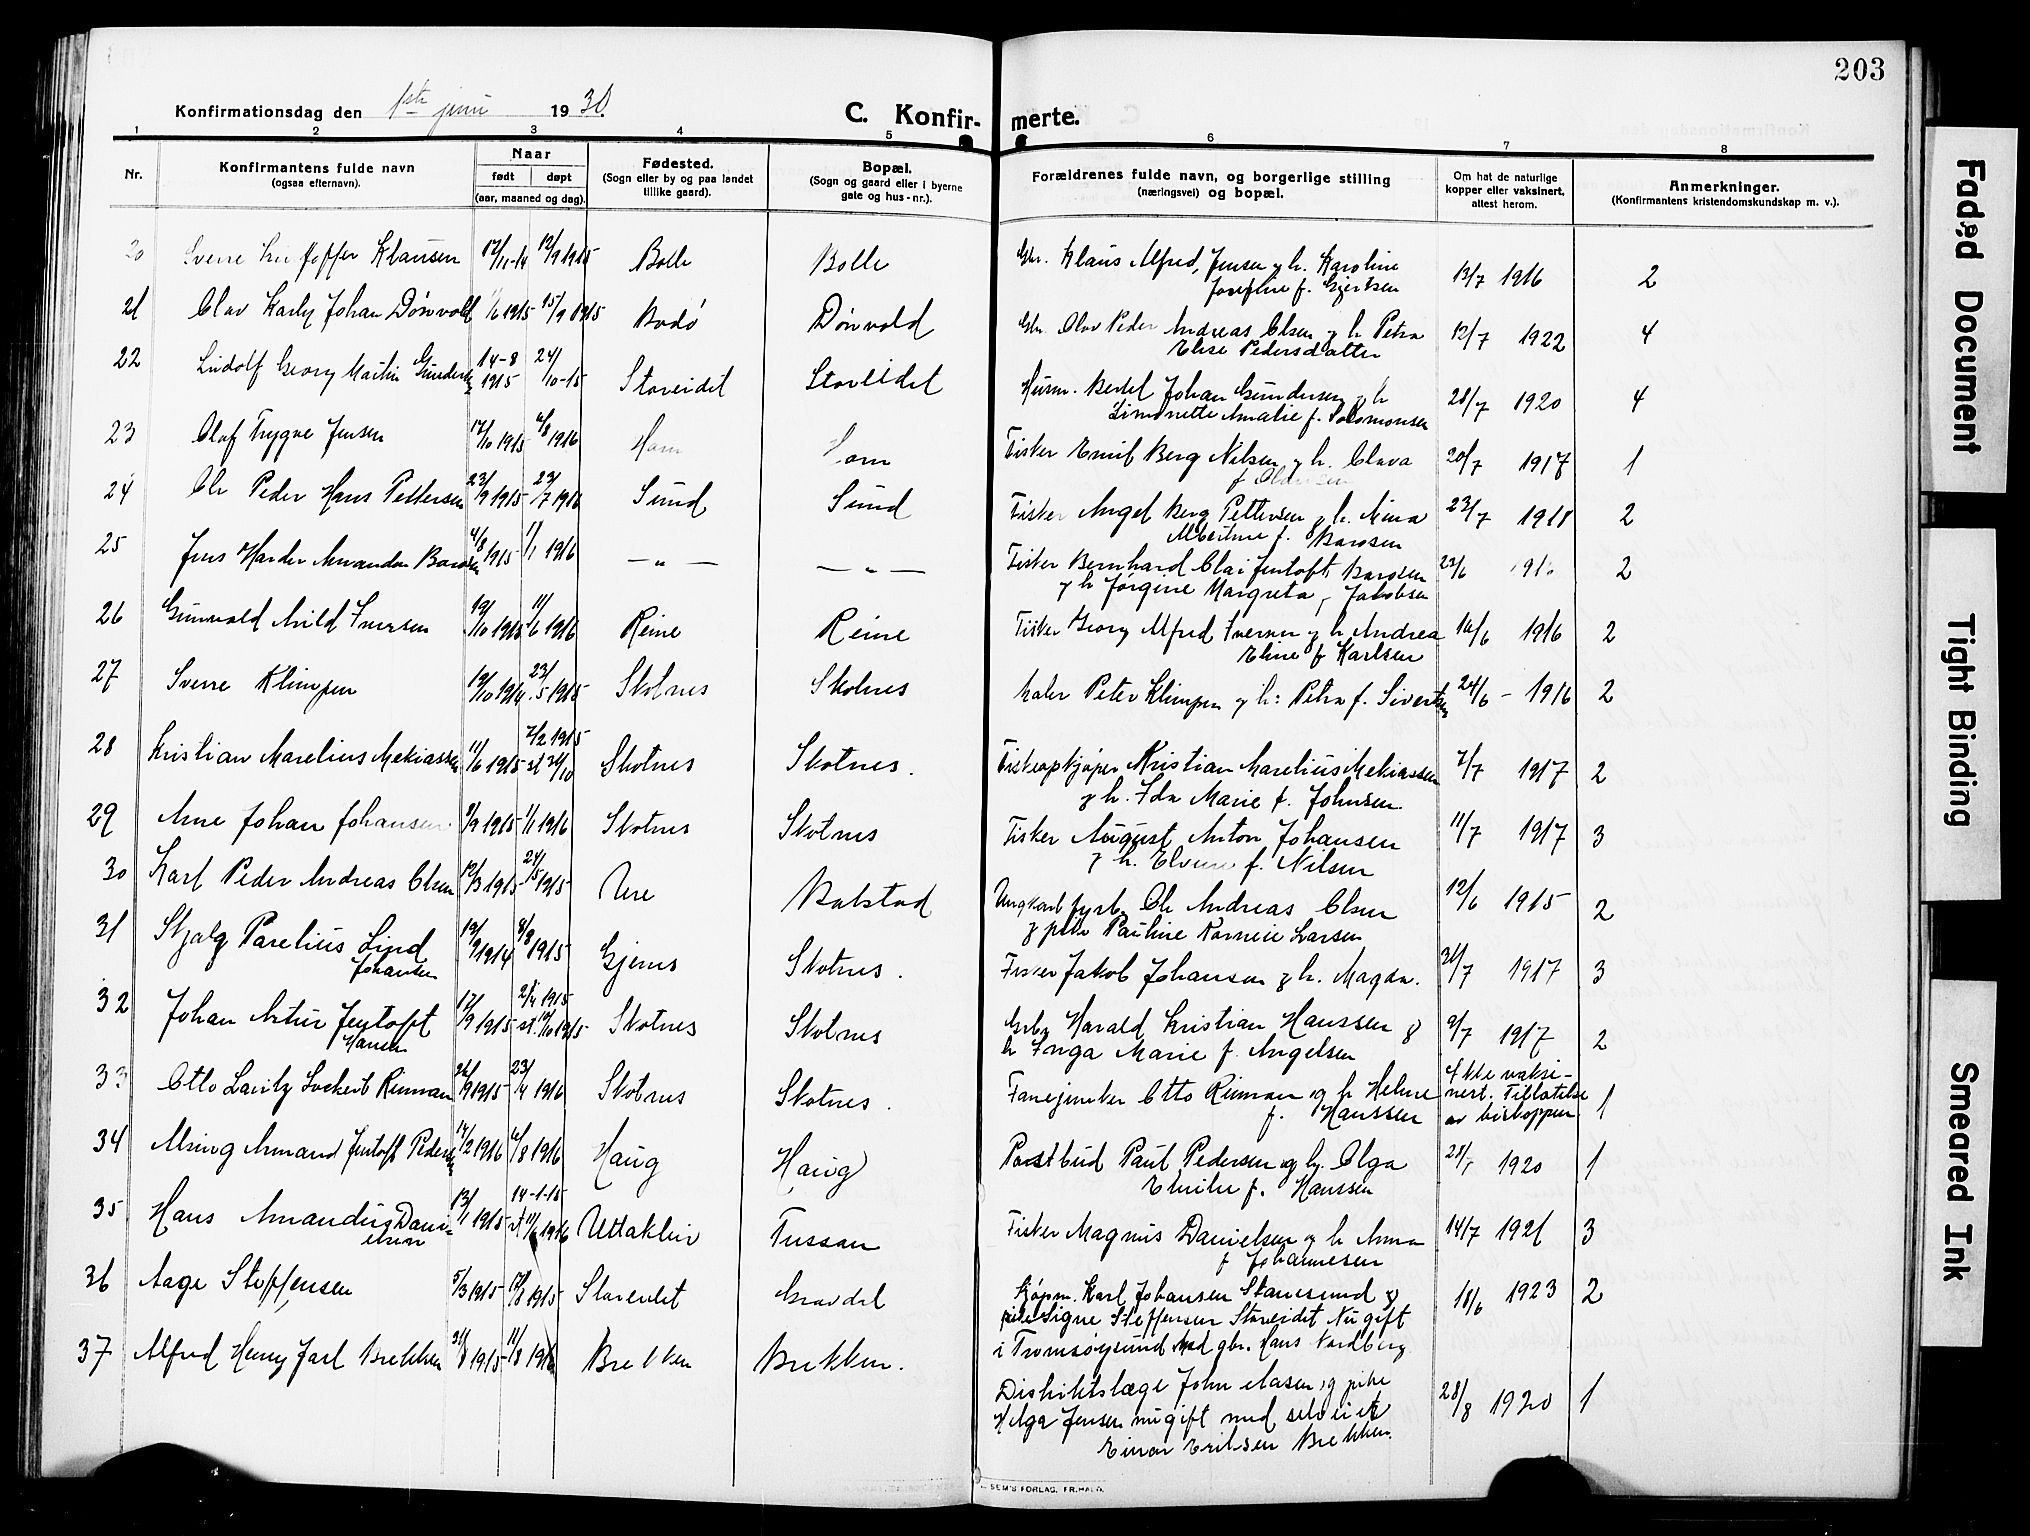 203
Konfirmationsdag den 1ste juni 1930.
C. Konfir- merte.
1 2 3 4 5 6 7 8
Nr.
Konfirmantens fulde navn
(ogsaa efternavn).
Naar
født døpt
(aar, maaned og dag).
Fødested.
(Sogn eller by og paa landet
tillike gaard).
Bopæl.
(Sogn og gaard eller i byerne
gate og hus-nr.).
Forældrenes fulde navn, og borgerlige stilling
(næringsvei) og bopæl.
Om hat de naturlige
kopper eller vaksinert,
attest herom.
Anmerkninger.
(Konfirmantens kristendomskundskap m. v.).
20 Sverre Klausen 17/11-14 12/9 1915 Bolle Bolle Gbr. Klaus Alfred Jensen og h. Karoline 13/7 1916 2
Josefine f. Gjertsen
21 Olav Karly Johan Dønvold 1/6 1915 15/9 1915 Bodø Dønvold Gbr. Olav Peder Andreas Olsen og h Petra 12/7 1922 4
Elise Pedersdatter
22 Ludolf Georg Martin Gundersen 14-8 1915 24/10-15 Storeidet Storeidet Husm. Bertel Johan Gundersen og h 28/7 1920 4
Simonette Amalie f. Salomonsen
23 Olaf Trygve Jensen 17/10 1915 6/8 1916 Horn Horn Fisker Emil Berg Nilsen og h. Olava 20/7 1917 1
24 Ole Peder Hans Pettersen 23/9 1915 23/7 1916 Sund Sund Fisker Angel Berg Pettersen og h. Mina 23/7 1918 2
Albertine f. Barosen
25 Jens Harder Amandon Barosen 4/8 1915 1/1 1916 — " — — " — Fisker Bernhard Olai Jentoft Barosen 23/6 2
og h Jørgine Margreta f. Jakobsen
26 Gunvald Arild Iversen 19/10 1915 11/6 1916 Reine Reine Fisker Georg Alfred Iversen og h Andrea 16/6 1916 2
Eline f Karlsen
27 Sverre Klimpen 19/10 1914 23/5 1915 Skotnes Skotnes Maler Peter Klimpen og h: Petra f. Sivertsen 24/6 - 1916 2
28 Kristian Marelius Mekiassen 11/6 1915 7/2 1915 st 24/10 Skotnes Skotnes. Fiskeopkjøper Kristian Marelius Mekiassen 7/7 1917 2
og h. Ida Marie f. Johnsen.
29 Arne Johan Johansen 2/9 1915 1/1 1916 Skotnes Skotnes Fisker August Anton Johansen 11/7 1917 3
og h. f. Nilsen
30 Karl Peder Andreas Olsen 12/3 1915 24/5 1915 Ure Balstad Ungkarl fyrb. Ole Andreas Olsen 12/6 1915 2
og pike Pauline Korneie Larsen
31 Skjalg Parelius Lind 19/9 1914 8/8 1915 Gjerns Skotnes. Fisker Jakob Johansen og h. Magda. 31/7 1917 3
Johansen
32 Johan Artur Jentoft 17/9 1915 2/4 1915 st. 10/10 1915 Skotnes Skotnes Grbr Harald Kristian Hanssen og 9/7 1917 2
Hansen h Inga Marie f. Angelsen
33 Otto Lauritz Lockert Rinman 26/9 1915 23/4 1916 Skotnes Skotnes. Fanejunker Otto Rinman og h Helene Ikke vaksi- 1
f. Hanssen nert. Tillatelse
av biskoppen
34 Alving Armand Jentoft Pedersen 14/2 1916 6/8 1916 Haug Haug Postbud Paul Pedersen og h. Olga 28/5 1920 1
Emilie f. Hanssen
35 Hans Amandus Dani- 13/1 1915 14-1-15 st 11/6 1916 Uttakleiv Fussan Fisker Magnus Danielsen og h Anna 14/7 1921 3
elsen f Johannesen
36 Aage Steffensen 5/3 1915 17/8 1915 Storeidet Gravdal Kjøpm. Karl Johansen Stamsund og 18/6 1923 2
pike Signe Steffensen Storeidet Nu gift
i Tromsøysund med gbr. Hans Nordberg
37 Alfred Henry Jarl Brekken 31/8 1915 11/8 1916 Brekken Brekken. Distriktslæge John Aasen og pike 28/8 1920 1
Helga Jensen nu gift med selveier
Einar Eriksen Brekken.
SEM'S FORLAG, FR.HALD.
Faded Document
Tight Binding
Smeared Ink